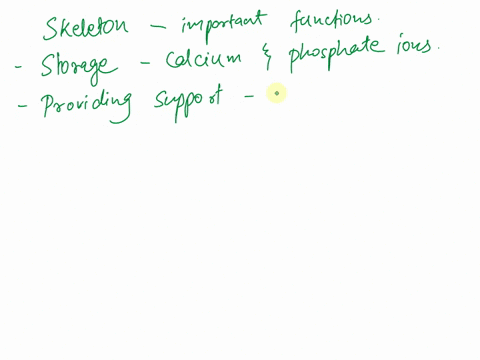 Skeleton - important functions.
- Storage - Calcium & phosphate ions.
- Providing support -